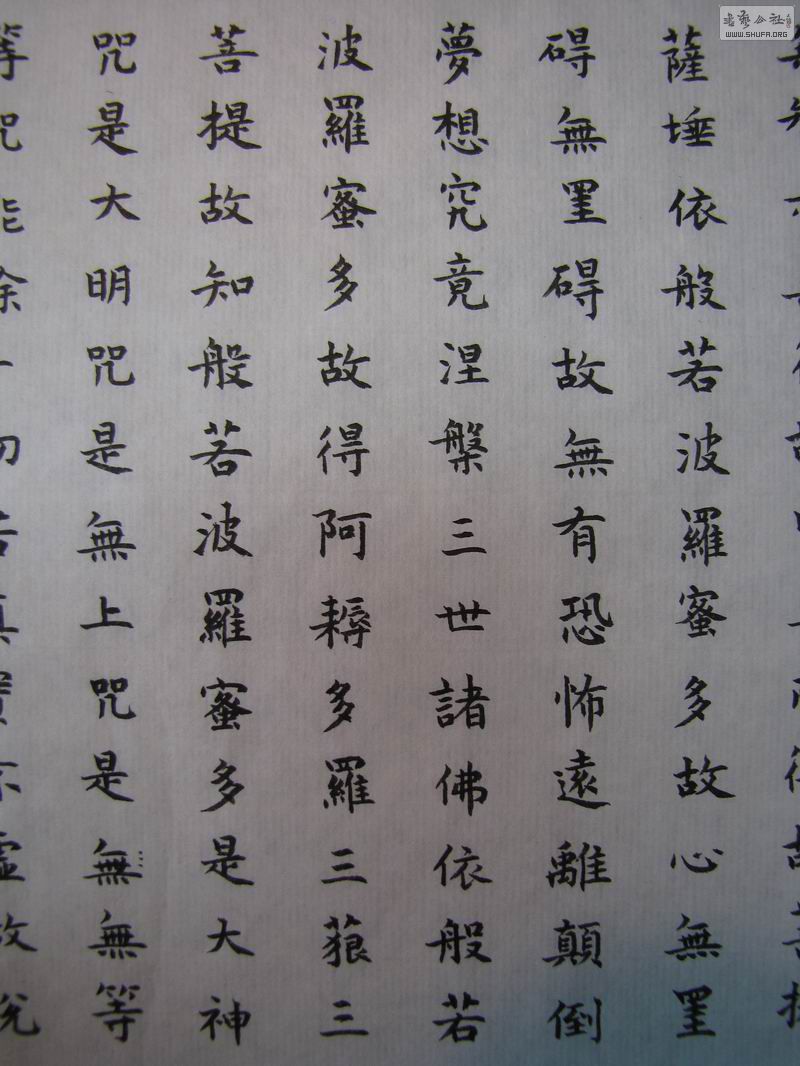 書藝公社
WWW.SHUFA.ORG
薩埵依般若波羅蜜多故心無罣
碍無罣碍故無有恐怖遠離顛倒
夢想究竟涅槃三世諸佛依般若
波羅蜜多故得阿耨多羅三藐三
菩提故知般若波羅蜜多是大神
咒是大明咒是無上咒是無無等
等咒能除一切苦真實不虛故說